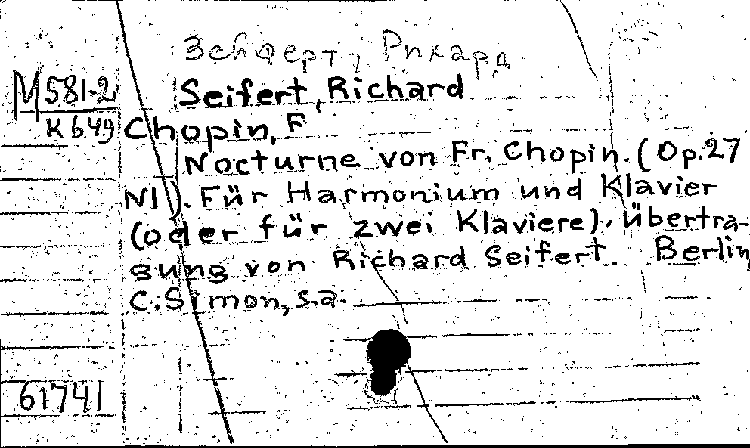 Зейферт, Рихард
М 581-2
К 649
Seifert, Richard
Chopin, F
Nocturne von Fr. Chopin. (Op.27
N1). Für Harmonium und Klavier
(oder für zwei Klaviere). Übertra-
gung von Richard Seifert. Berlin,
C. Simon, s.a.
61741